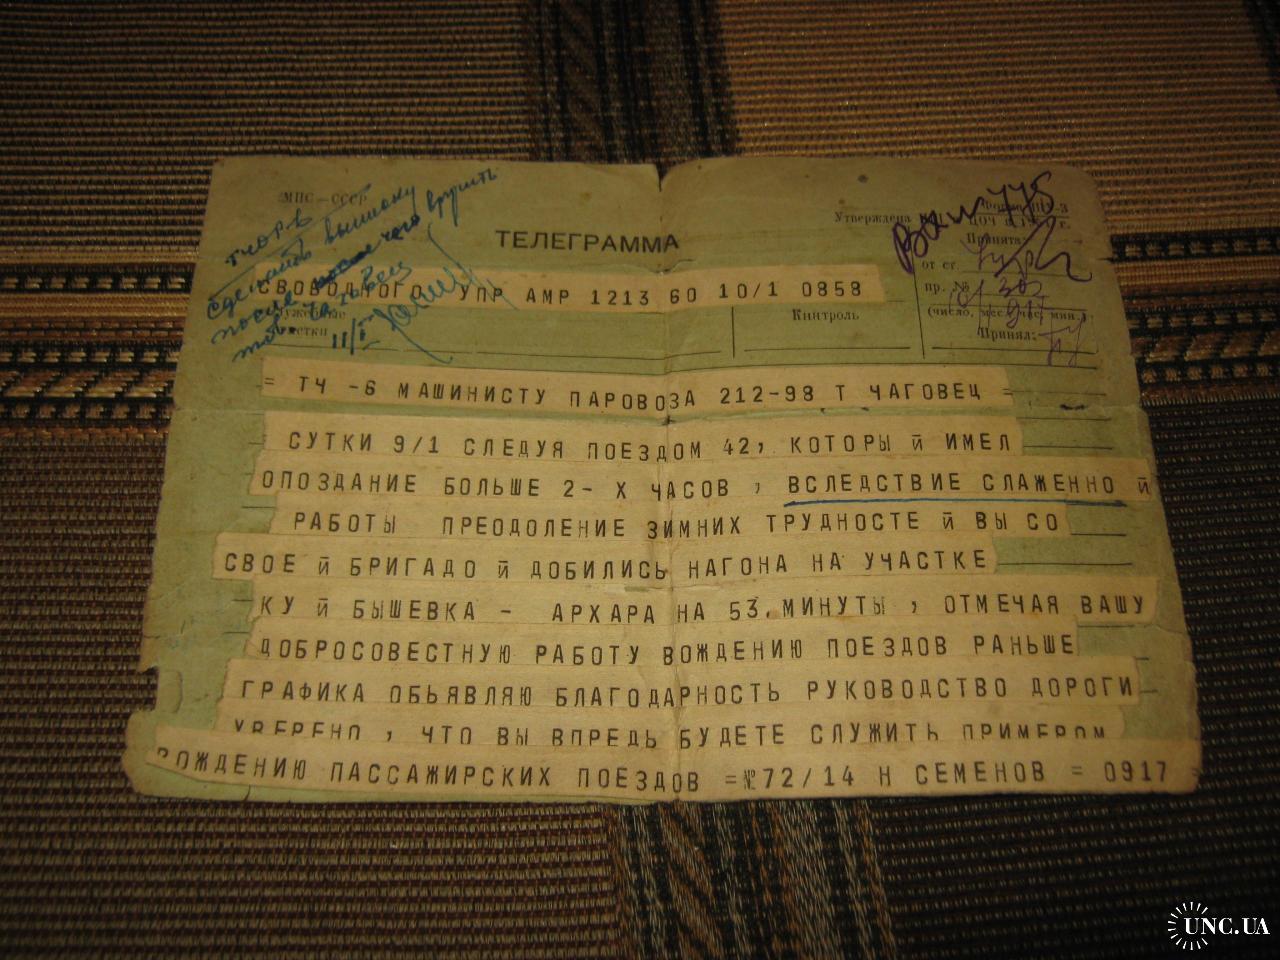 МПС — СССР
ТЕЛЕГРАММА
Утверждена
Принята
от ст.
пр. №
(число, мес., час, мин.)
Принял:
Контроль
сделать выписку
после чего вручить
тов. Чаговец
11/I
СВОБОДНОГО УПР АМР 1213 60 10/1 0858
= ТЧ -6 МАШИНИСТУ ПАРОВОЗА 212-98 Т ЧАГОВЕЦ =
СУТКИ 9/1 СЛЕДУЯ ПОЕЗДОМ 42, КОТОРЫ Й ИМЕЛ
ОПОЗДАНИЕ БОЛЬШЕ 2- Х ЧАСОВ , ВСЛЕДСТВИЕ СЛАЖЕННО Й
РАБОТЫ ПРЕОДОЛЕНИЕ ЗИМНИХ ТРУДНОСТЕ Й ВЫ СО
СВОЕ Й БРИГАДО Й ДОБИЛИСЬ НАГОНА НА УЧАСТКЕ
КУ Й БЫШЕВКА - АРХАРА НА 53, МИНУТЫ , ОТМЕЧАЯ ВАШУ
ДОБРОСОВЕСТНУЮ РАБОТУ ВОЖДЕНИЮ ПОЕЗДОВ РАНЬШЕ
ГРАФИКА ОБЬЯВЛЯЮ БЛАГОДАРНОСТЬ РУКОВОДСТВО ДОРОГИ
УВЕРЕНО , ЧТО ВЫ ВПРЕДЬ БУДЕТЕ СЛУЖИТЬ ПРИМЕРОМ
ВОЖДЕНИЮ ПАССАЖИРСКИХ ПОЕЗДОВ =№72/14 Н СЕМЕНОВ = 0917
UNC.UA